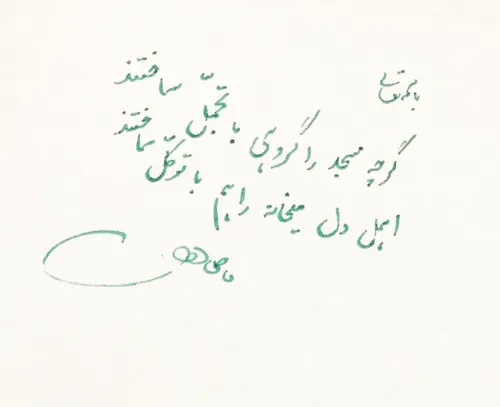 باسمه تعالی
گرچه مسجد را گروهی با تجمّل ساختند
اهل دل میخانه را هم با توکّل ساختند